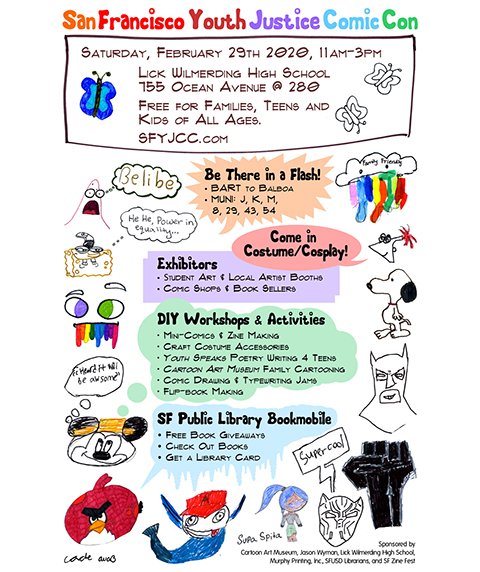 San Francisco Youth Justice Comic Con
Saturday, February 29th 2020, 11am-3pm
Lick Wilmerding High School
755 Ocean Avenue @ 280
Free for Families, Teens and
Kids of All Ages.
SFYJCC.com
Belibe
Be There in a Flash!
• BART to Balboa
• MUNI: J, K, M,
8, 29, 43, 54
Family Friendly
He He, Power in
equality...
Come in
Costume/Cosplay!
Exhibitors
• Student Art & Local Artist Booths
• Comic Shops & Book Sellers
DIY Workshops & Activities
• Mini-Comics & Zine Making
• Craft Costume Accessories
• Youth Speaks Poetry Writing 4 Teens
• Cartoon Art Museum Family Cartooning
• Comic Drawing & Typewriting Jams
• Flip-book Making
"I Heard it Will
be awsome"
SF Public Library Bookmobile
• Free Book Giveaways
• Check Out Books
• Get a Library Card
Super cool
Supa Spita
Cade
Sponsored by
Cartoon Art Museum, Jason Wyman, Lick Wilmerding High School,
Murphy Printing, Inc, SFUSD Librarians, and SF Zine Fest